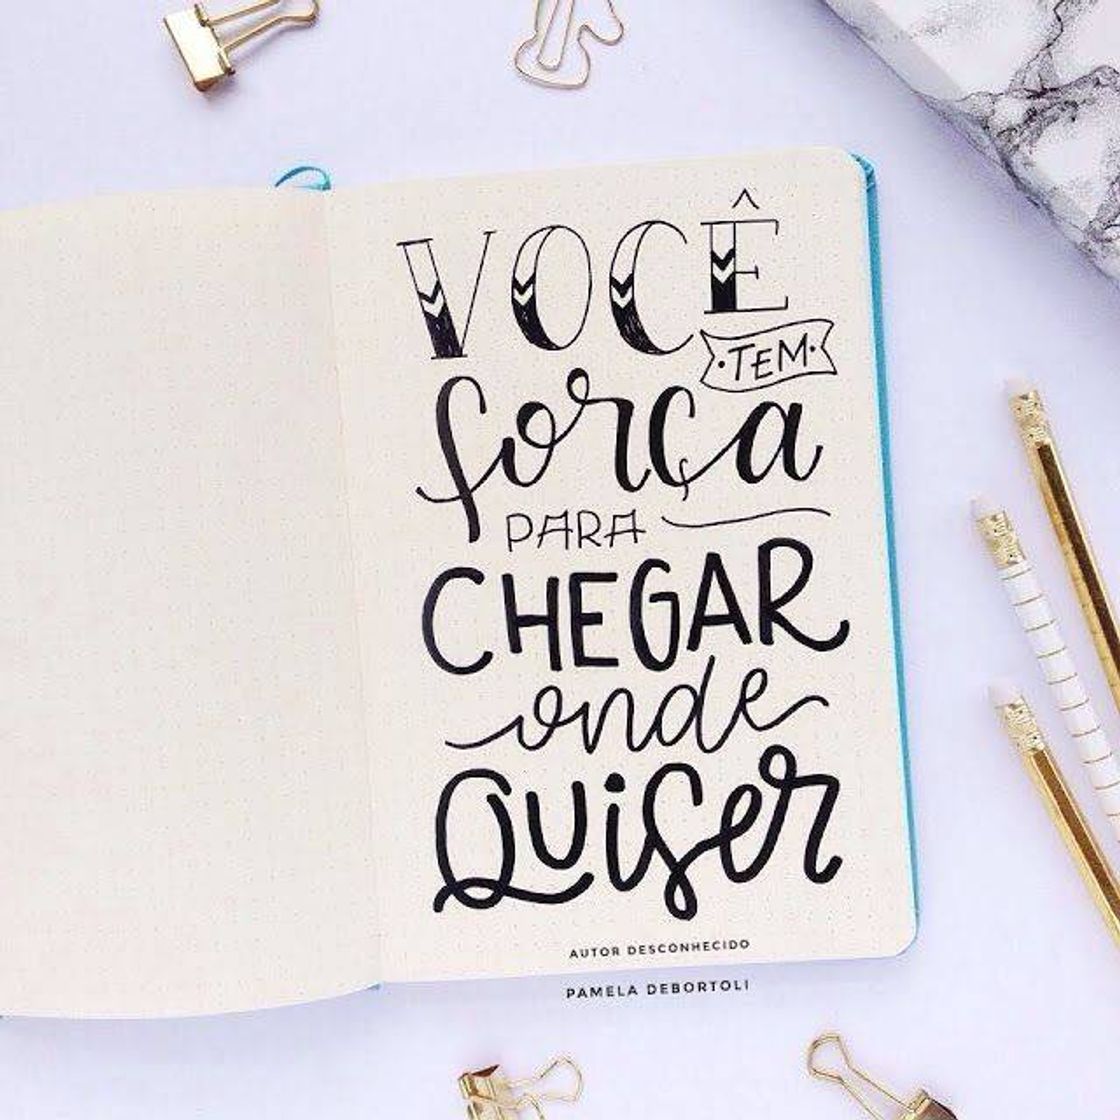 VOCÊ
TEM
força
PARA
CHEGAR
onde
QUiSer
AUTOR DESCONHECIDO
PAMELA DEBORTOLI